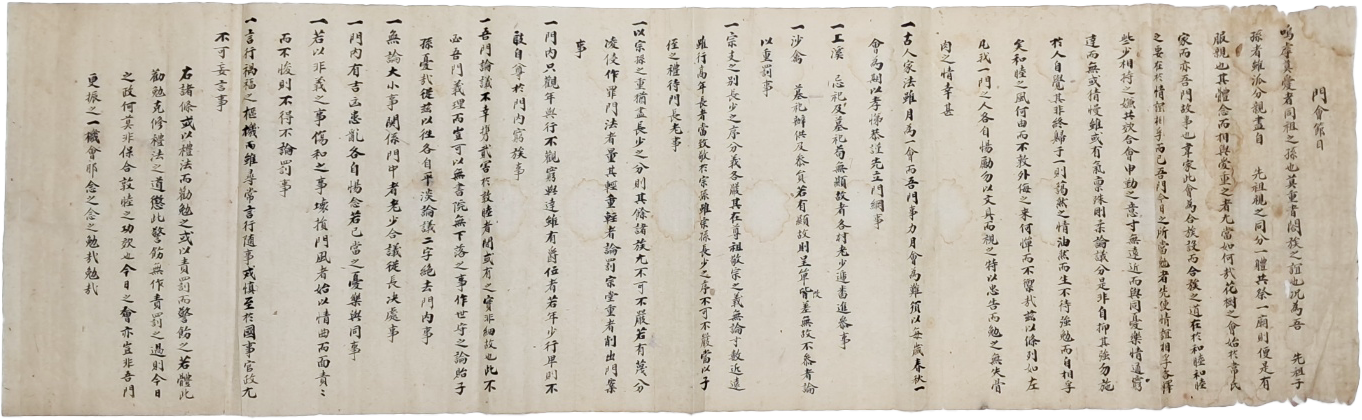 門會節目
嗚虖眞愛者同祖之孫也莫重者闔族之誼也況為吾 先祖子
孫者雖派分親盡自 先祖視之同分一體共祭一廟則便是有
服親也其體念而相與愛重之者尤當如何哉花樹之會始於韋氏
家而亦吾門故事也韋家此會為合族設而合族之道在於和睦和睦
之要在於情誼相孚而已吾門今日之所當勉者先使情誼相孚各釋
些少相待之嫌共效合會申勤之意寸無遠近而與同憂樂情通窮
達而無或情慢雖或有氣禀殊剛柔論議分是非自抑其強勿施
於人自覺其非終歸于一則藹然之情油然而生不待強勉而自相孚
矣和睦之風何由而不敦外侮之來何憚而不禦哉茲以條列如左
凡我一門之人各自惕勵勿以文具而視之特以忠告而勉之無失骨
肉之情幸甚
一古人家法雖月為一會而吾門事力月會為難須以每歲春秋一
會為期以孝悌恭謹先立門綱事
一工溪 忌祀及墓祀苟無顯故者各村老少進審進參事
一沙禽 墓祀辦供及參員若有顯故則呈單皆差無故不參者論
以重罰事
一宗支之別長少之序分義各嚴其在尊祖敬宗之義無論寸數近遠
雖行高年長者當致敬於宗孫雖宗孫長少之序不可不嚴當以子
侄之禮待門長老事
一以宗孫之重猶盡長少之分則其餘諸族尤不可不嚴若有蔑分
凌侵作罪門法者量其輕重輕者論罰宗堂重者削出門案
事
一門內只觀年與行不觀窮與達雖有爵位者若年少行卑則不
敢自尊於門內窮族事
一吾門論議不幸携貳害於敦睦者間或有之實非細故也此不
必吾門義理而豈可以無書院無下落之事作世守之論貽子
孫憂哉從茲以往各自平淡論議二字絶去門內事
一無論大小事關係門中者老少合議從長決處事
一門內有吉凶患亂各自惕念若己當之憂樂與同事
一若以非義之事傷和之事壞損門風者始以情曲而面責之
而不悛則不得不論罰事
一言行禍福之樞機而雖尋常言行隨事戒愼至於國事官政尤
不可妄言事
右諸條或以禮法而勸勉之或以責罰而警飭之若體此
勸勉克修禮法之道懲此警飭無作責罰之過則今日
之政何莫非保合敦睦之功效也今日之會亦豈非吾門
更振之一機會耶念之念之勉哉勉哉